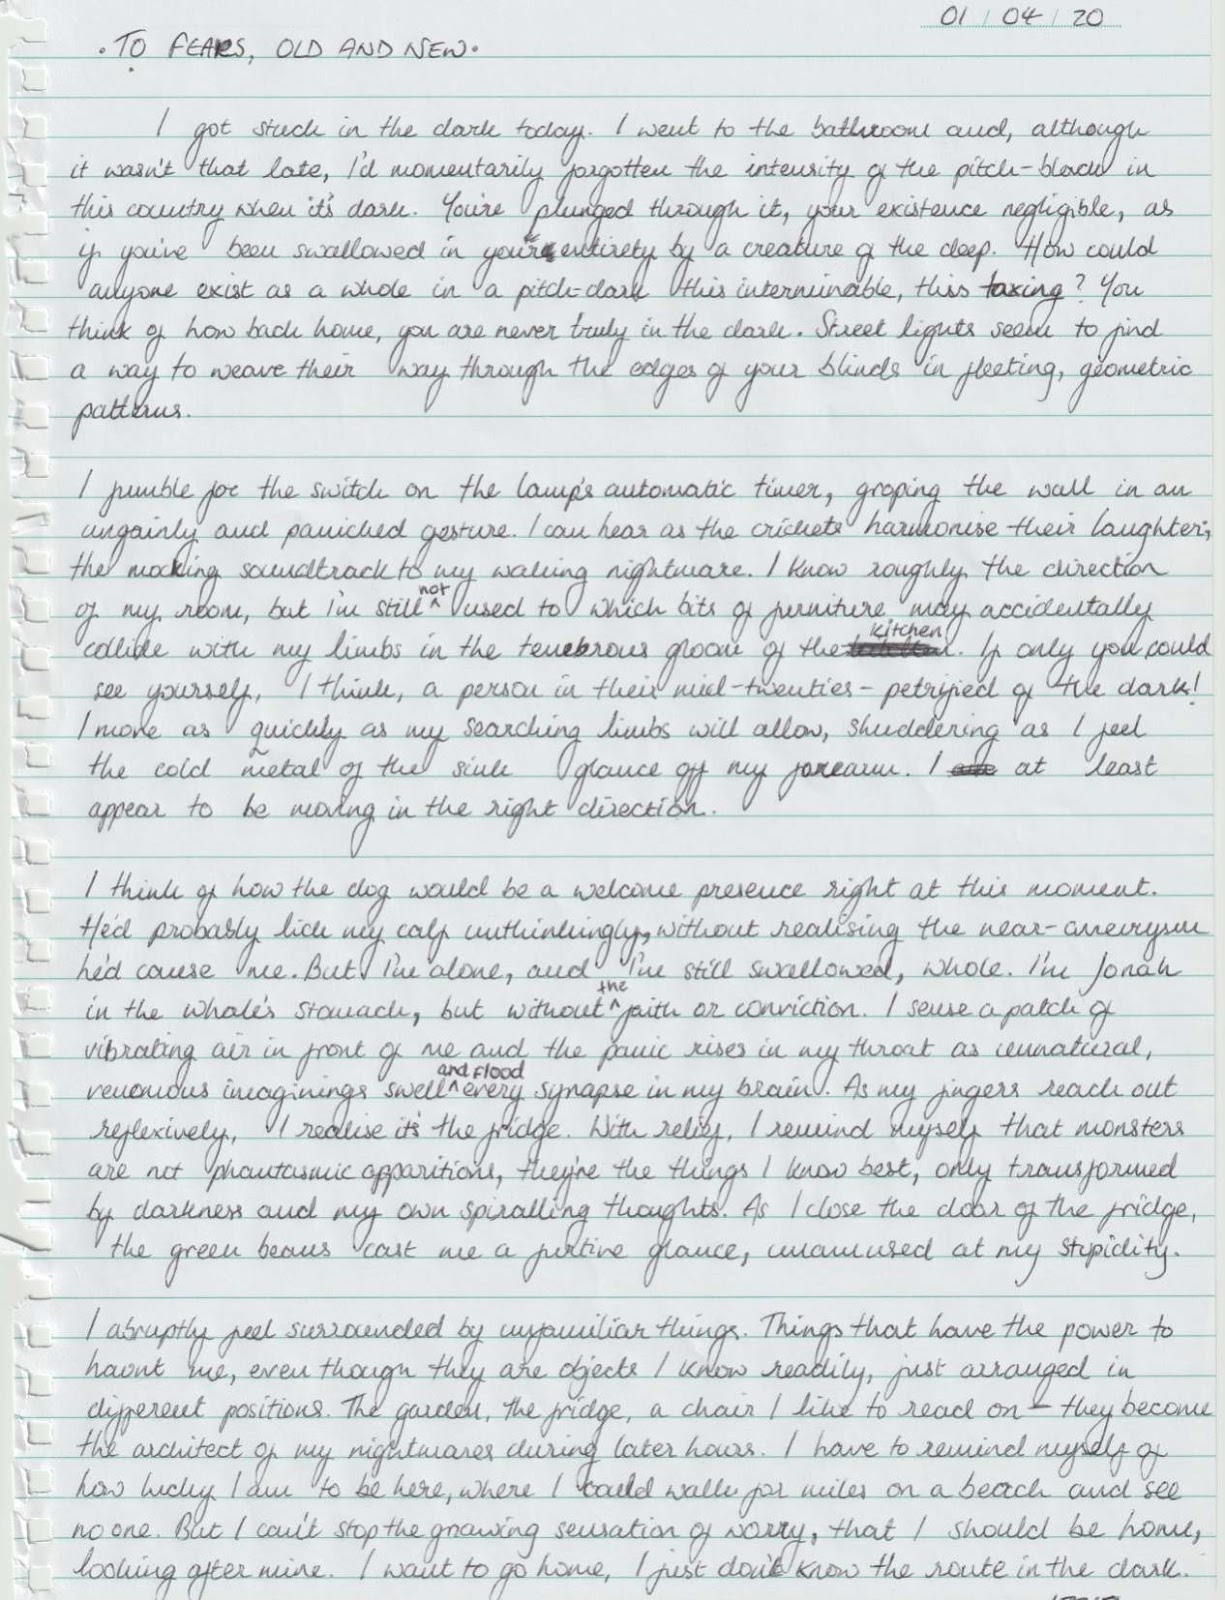 01 / 04 / 20
• TO FEARS, OLD AND NEW •
I got stuck in the dark today. I went to the bathroom and, although
it wasn't that late, I'd momentarily forgotten the intensity of the pitch-black in
this country when it's dark. You're plunged through it, your existence negligible, as
if you've been swallowed in your entirety by a creature of the deep. How could
anyone exist as a whole in a pitch-dark this interminable, this taxing? You
think of how back home, you are never truly in the dark. Street lights seem to find
a way to weave their way through the edges of your blinds in fleeting, geometric
patterns.
I fumble for the switch on the lamp's automatic timer, groping the wall in an
ungainly and panicked gesture. I can hear as the crickets harmonise their laughter;
the mocking soundtrack to my waking nightmare. I know roughly the direction
of my room, but I'm still not used to which bits of furniture may accidentally
collide with my limbs in the tenebrous gloom of the kitchen. If only you could
see yourself, I think, a person in their mid-twenties - petrified of the dark!
I move as quickly as my searching limbs will allow, shuddering as I feel
the cold metal of the sink glance off my forearm. I at least
appear to be moving in the right direction.
I think of how the dog would be a welcome presence right at this moment.
He'd probably lick my calf unthinkingly, without realising the near-aneurysm
he'd cause me. But I'm alone, and I'm still swallowed, whole. I'm Jonah
in the whale's stomach, but without the faith or conviction. I sense a patch of
vibrating air in front of me and the panic rises in my throat as unnatural,
venomous imaginings swell and flood every synapse in my brain. As my fingers reach out
reflexively, I realise it's the fridge. With relief, I remind myself that monsters
are not phantasmic apparitions, they're the things I know best, only transformed
by darkness and my own spiralling thoughts. As I close the door of the fridge,
the green beans cast me a furtive glance, unamused at my stupidity.
I abruptly feel surrounded by unfamiliar things. Things that have the power to
haunt me, even though they are objects I know readily, just arranged in
different positions. The garden, the fridge, a chair I like to read on - they become
the architect of my nightmares during later hours. I have to remind myself of
how lucky I am to be here, where I could walk for miles on a beach and see
no one. But I can't stop the gnawing sensation of worry, that I should be home,
looking after mine. I want to go home, I just don't know the route in the dark.